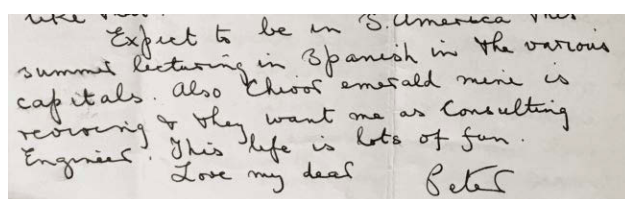 like
Expect to be in S. America this
summer lecturing in Spanish in the various
capitals. Also Chivor emerald mine is
reviving & they want me as Consulting
Engineer. This life is lots of fun.
Love my dear Peter